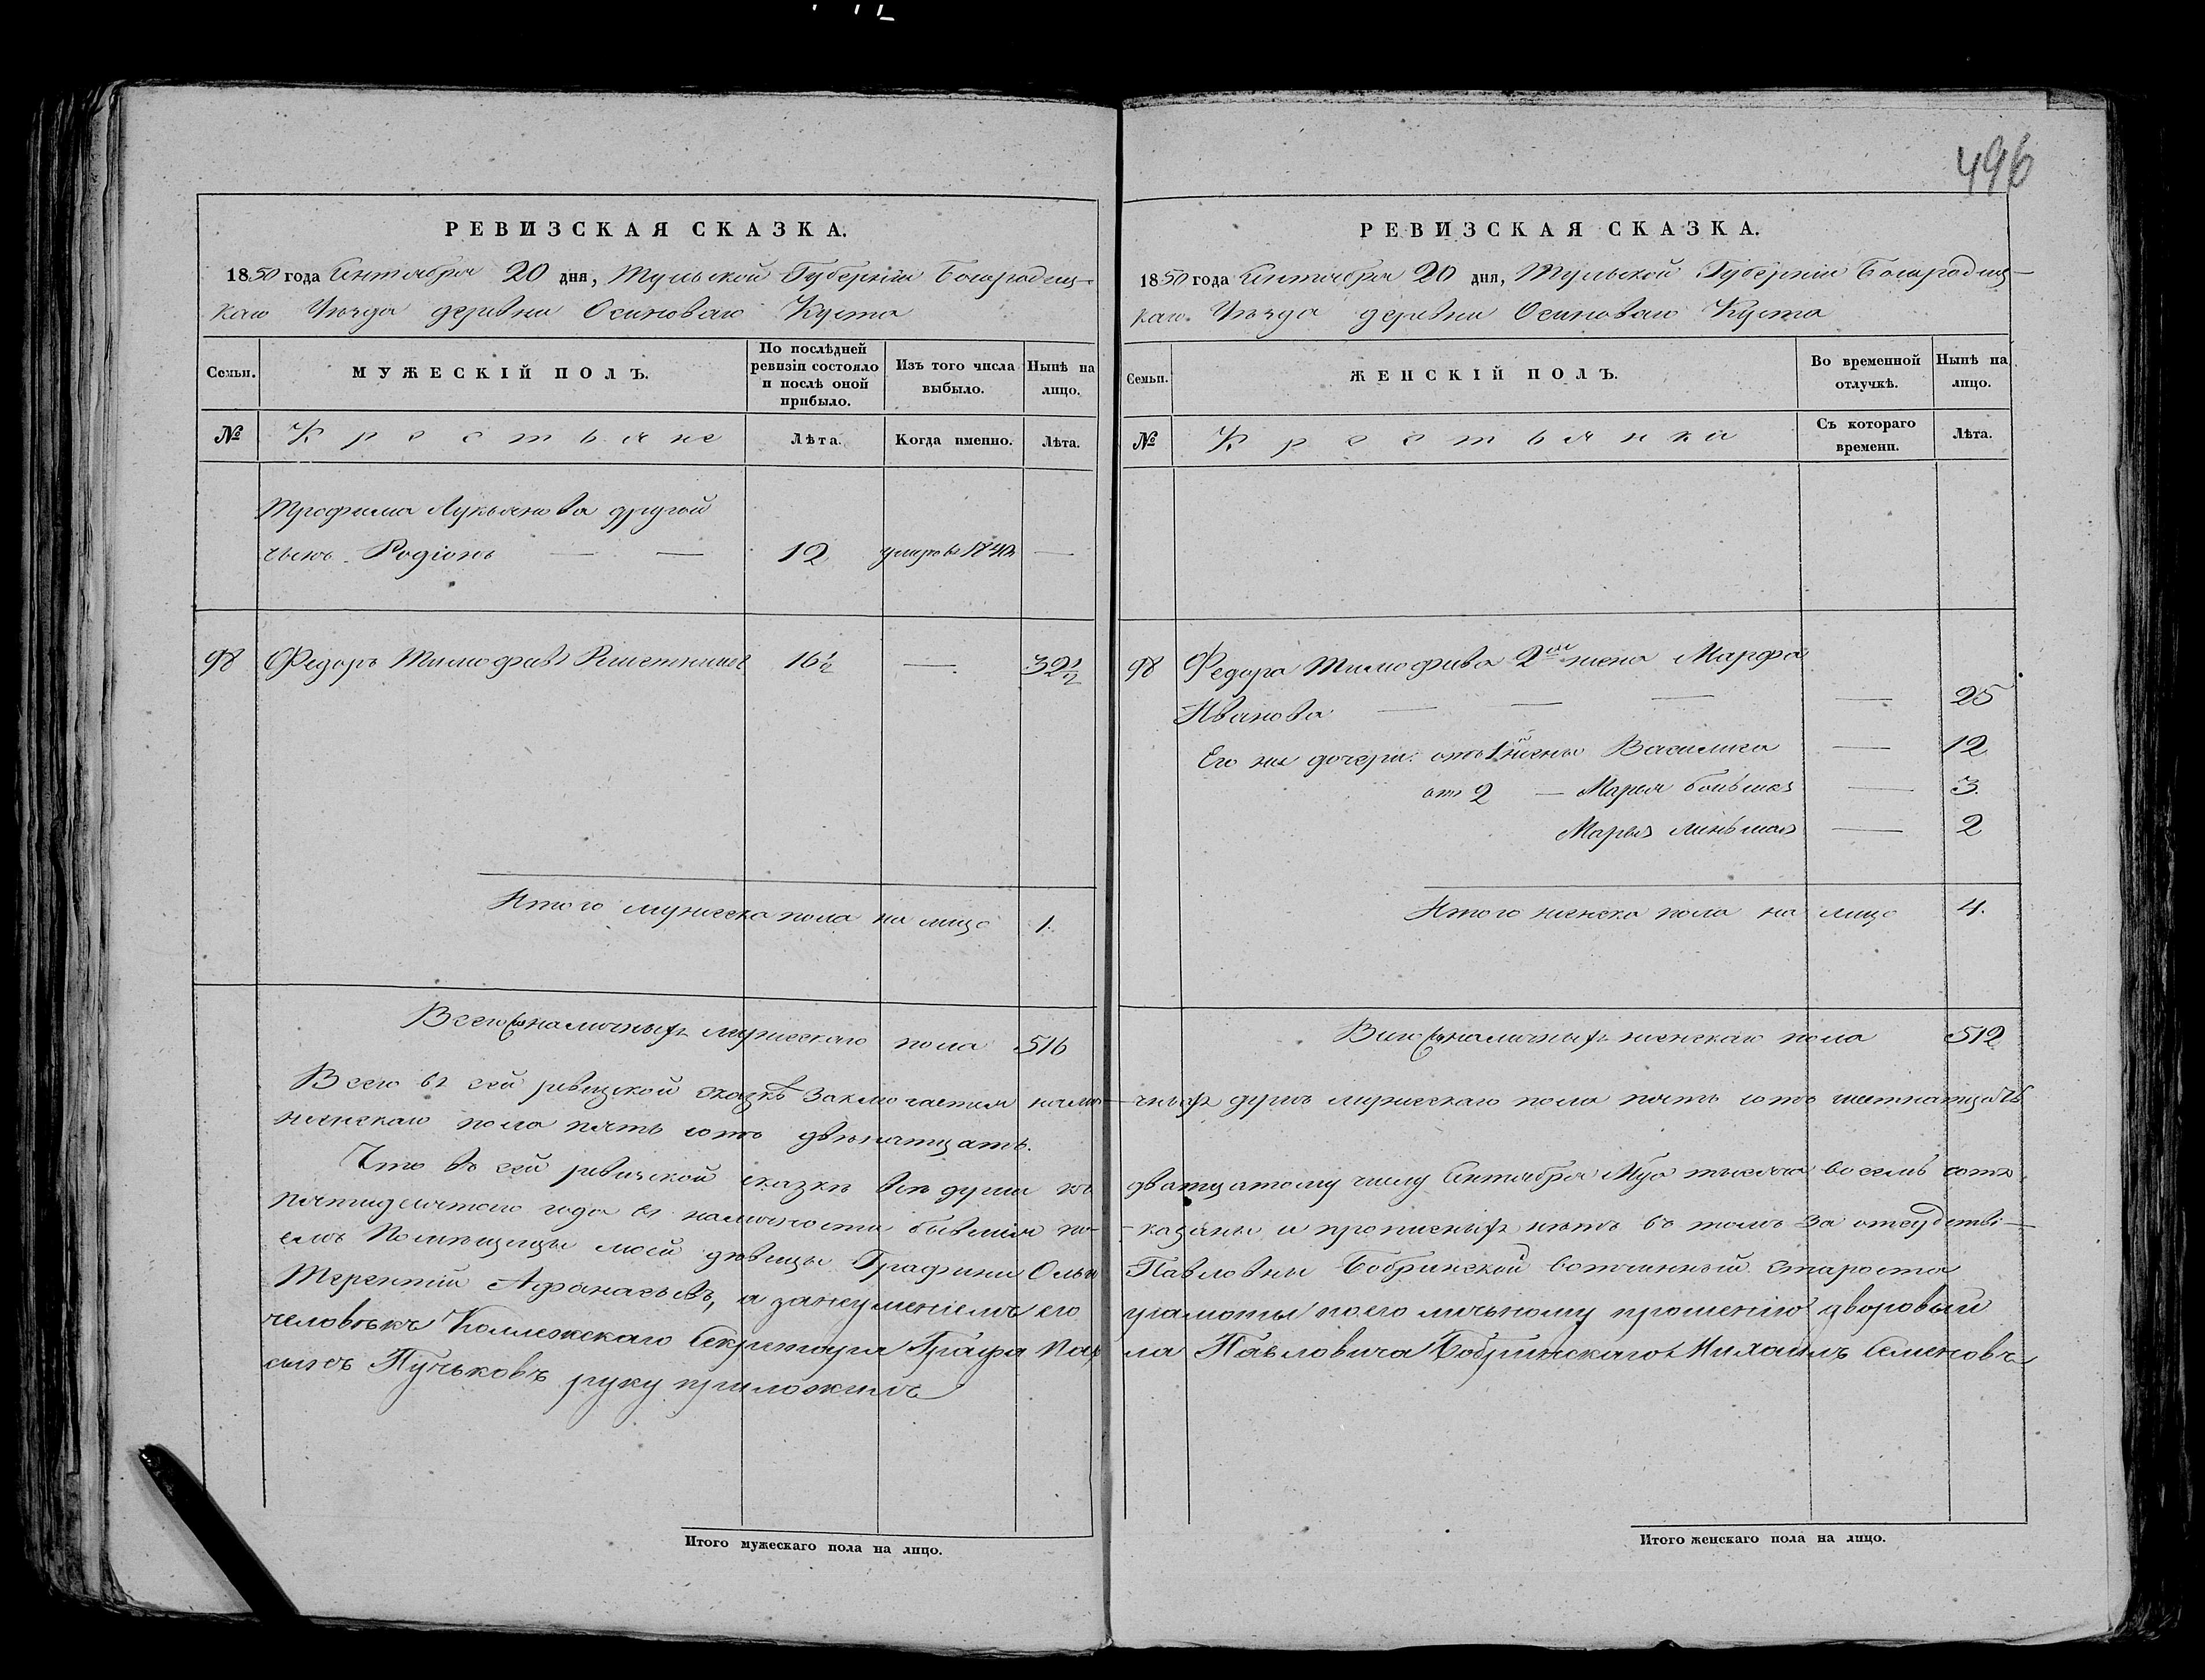 496
РЕВИЗСКАЯ СКАЗКА.
1850 года Сентября 20 дня, Тульской Губерніи Богородиц-
каго Уѣзда деревни Осиноваго Куста
Семьи. МУЖЕСКІЙ ПОЛЪ. По послѣдней ревизіи состояло и послѣ оной прибыло. Изъ того числа выбыло. Нынѣ на лицо.
№ Крестьяне Лѣта. Когда именно. Лѣта.
Трофима Лукьянова другой
сынъ Родіонъ — — 12 умеръ въ —
98 Федоръ Тимофѣевъ 16½ — 32½
Итого мужеска пола на лицо 1.
Всего наличныхъ мужескаго пола 516
РЕВИЗСКАЯ СКАЗКА.
1850 года Сентября 20 дня, Тульской Губерніи Богородиц-
каго Уѣзда деревни Осиноваго Куста
Семьи. ЖЕНСКІЙ ПОЛЪ. Во временной отлучкѣ. Нынѣ на лицо.
№ Крестьянки Съ котораго времени. Лѣта.
98 Федора Тимофѣева 2ая жена Марфа
Иванова — — — — 25
Его же дочери: отъ 1й жены Василиса — 12
отъ 2 — Марья большая — 3.
Марья меньшая — 2
Итого женска пола на лицо 4.
Всего наличныхъ женскаго пола 512
Всего въ сей ревизской сказкѣ заключается налич-ныхъ душъ мужескаго пола пять сотъ шестнатцать
женскаго пола пять сотъ двѣнатцать.
Что въ сей ревизской сказкѣ всѣ души къ дватцатому числу Сентября тысяча восемь сотъ
пятидесятого года въ наличности бывшія по-казаны и прописныхъ нѣтъ въ томъ за отсудстві-
емъ Помѣщицы моей дѣвицы Графини Ольги Павловны Бобринской вотчинный Староста
Терентій Афанасьевъ, а занеумѣніемъ его грамоты по его личьному прошенію дворовый
человѣкъ Коллежскаго Секретаря Графа Пав-ла Павловича Бобринскаго Михаилъ Семеновъ
сынъ Пучьковъ руку приложилъ
Итого мужескаго пола на лицо.
Итого женскаго пола на лицо.